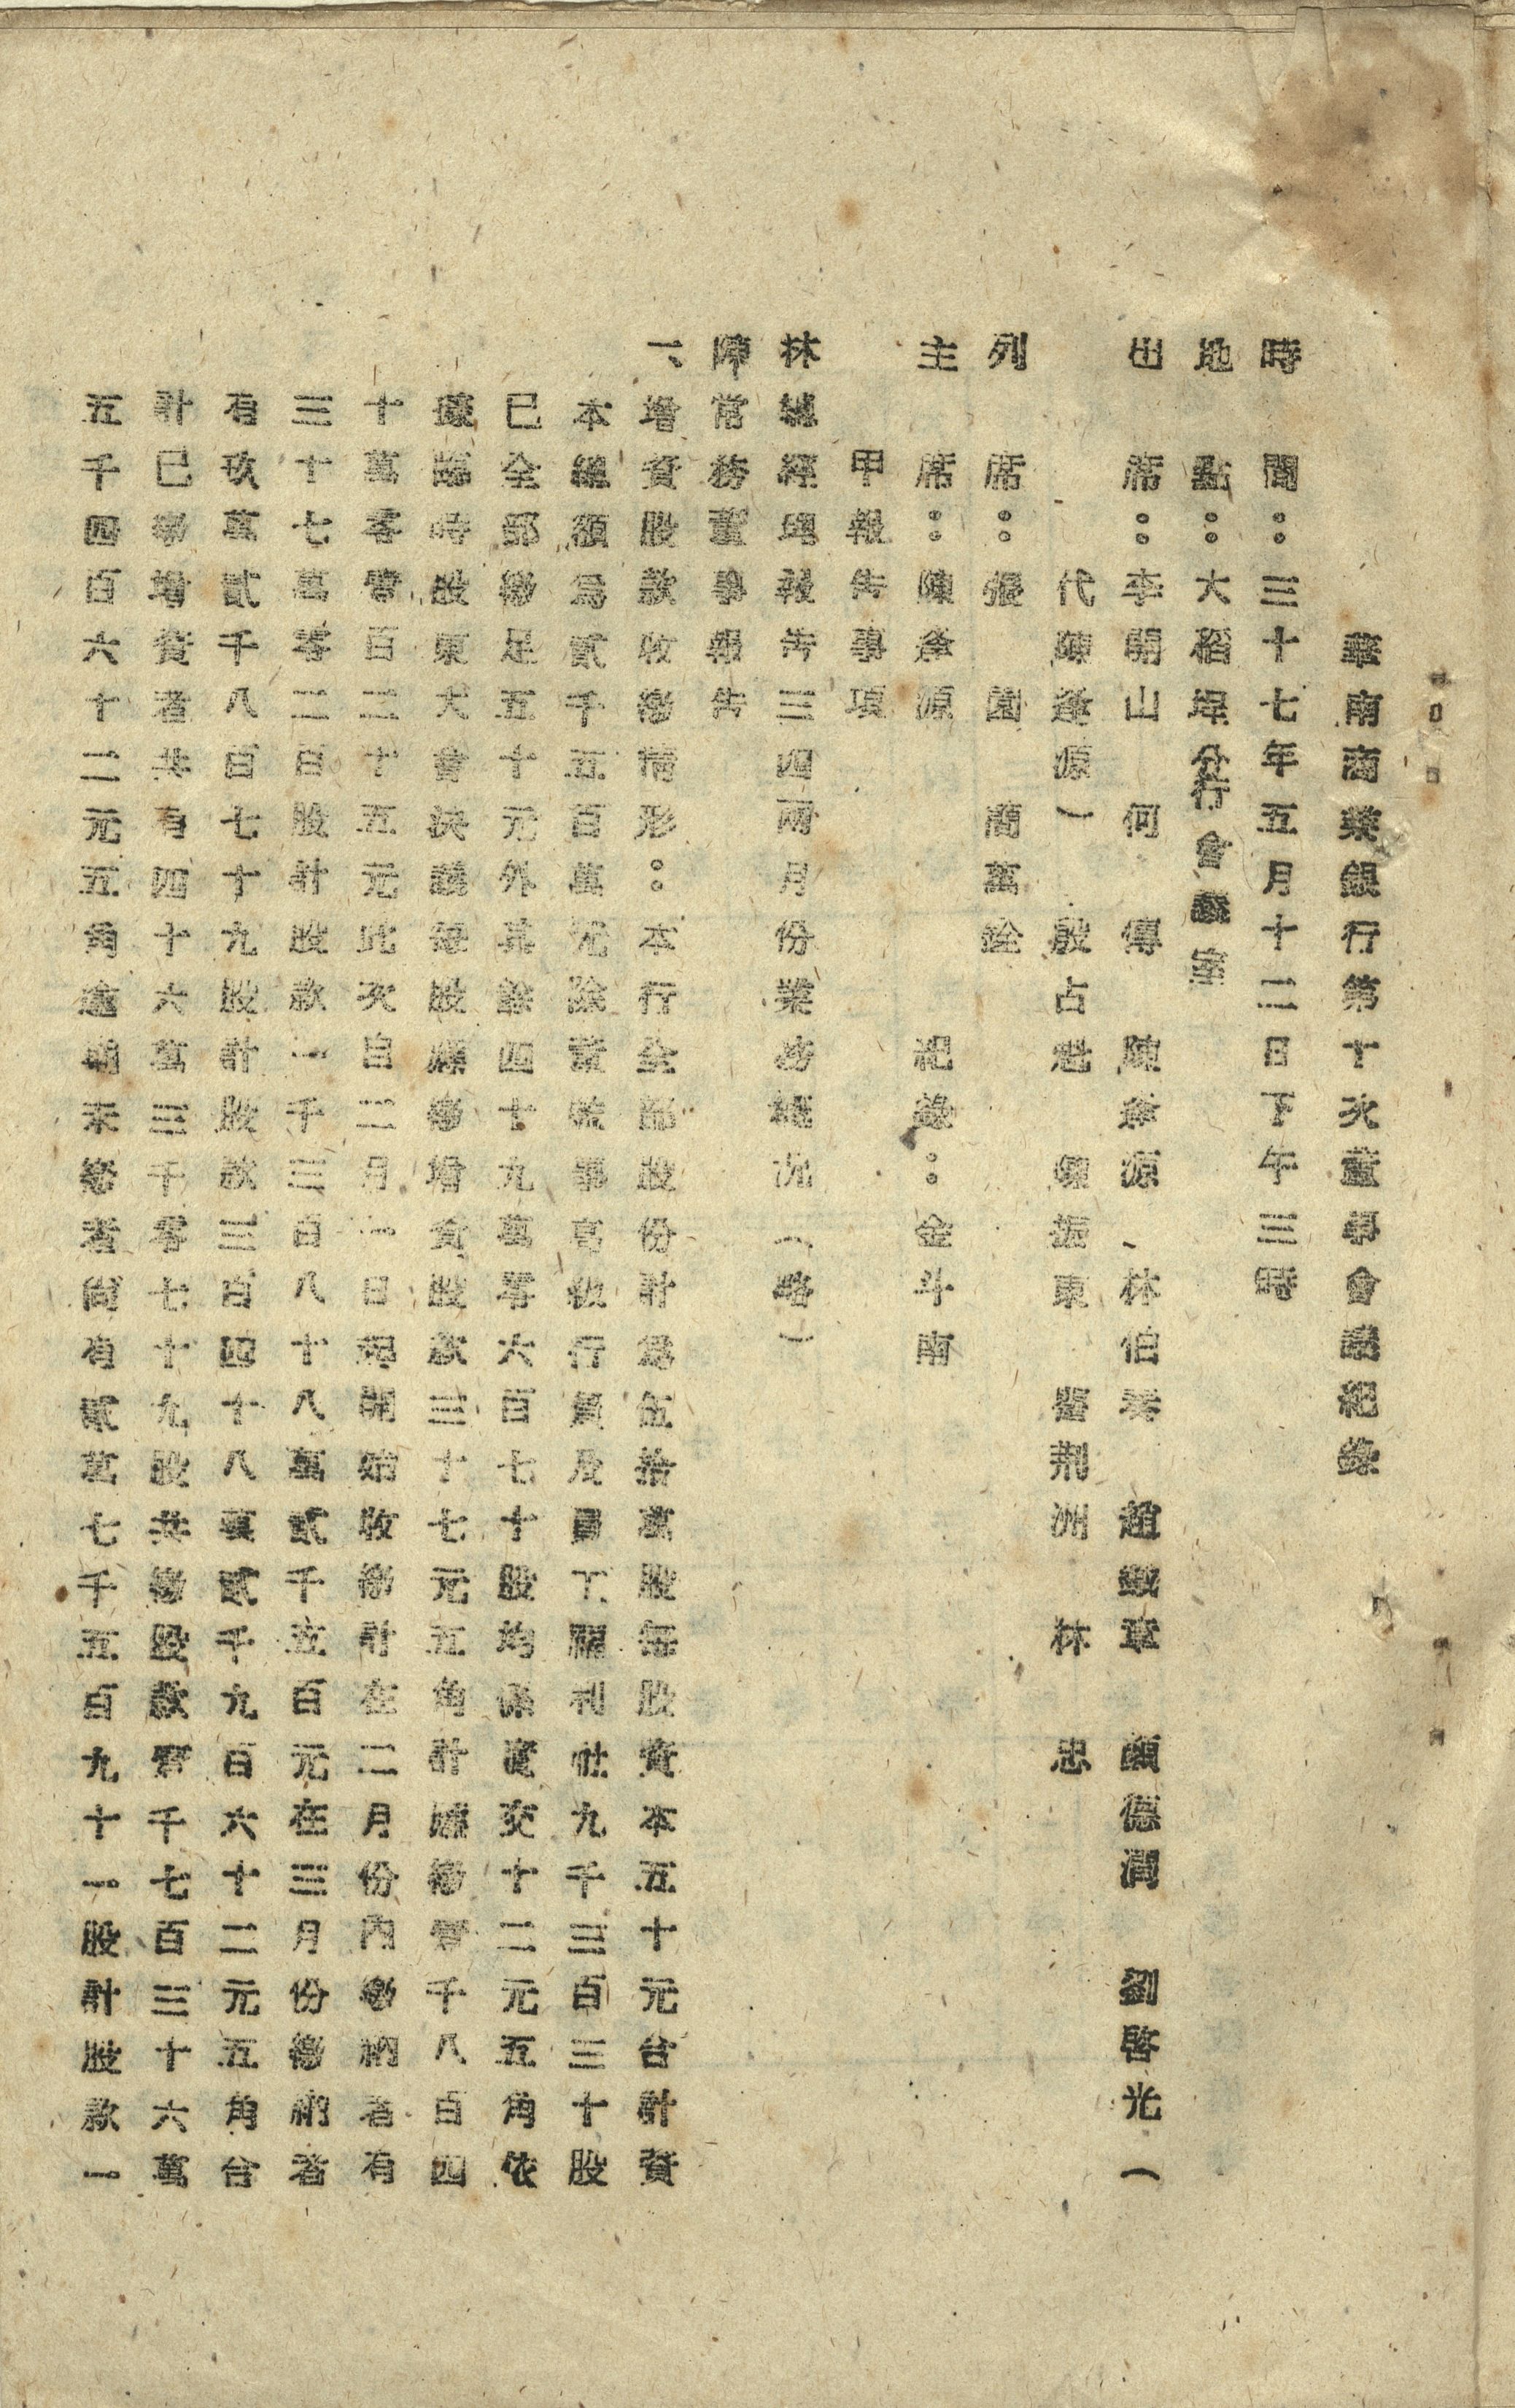 華南商業銀行第十次董事會議紀錄
時間：三十七年五月十二日下午三時
地點：大稻埕分行會議室
出席：李開山 何 傳 陳逢源、林伯壽 趙 章 顏德潤 劉啓光（
代陳逢源） 殷占 陳振東 劉荆洲 林 忠
列席：張園 商萬
主席：陳逢源 紀錄：金斗南
甲報告事項
林總經理報告三四兩月份業務概況（略）
陳常務董事報告
一、增資股款收繳情形：本行全部股份計爲伍拾萬股每股資本五十元台計資
本總額爲貳千五百萬元除業務事 行員及員工福利社九千三百三十股
已全部繳足五十元外其餘四十九萬零六百七十股均 十二元五角依
據臨時股東大會決議每股應繳增資股款三十七元五角計應繳 千八百四
十萬零零百二十五元此次自二月一日起開始收繳計在二月份內繳納者有
三十七萬零二百股計股款一千三百八十八萬貳千五百元在三月份繳納者
有玖萬貳千八百七十九股計股款三百四十八萬貳千九百六十二元五角合
計已繳增資者共有四十六萬三千零七十九股共繳股款 千七百三十六萬
五千四百六十二元五角逾期未繳者尚有貳萬七千五百九十一股計股款一